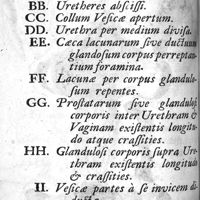 BB. Uretheres abscissi.
CC. Collum Vesicæ apertum.
DD. Urethra per medium divisa.
EE. Cæca lacunarum sive ductuum
glandosum corpus perreptan-
tium foramina.
FF. Lacunæ per corpus glandulo-
sum repentes.
GG. Prostatarum sive glandulosi
corporis inter Urethram &
Vaginam existentis longitu-
do atque crassities.
HH. Glandulosi corporis supra Ure-
thram existentis longitudo
& crassities.
II. Vesicæ partes à se invicem di-